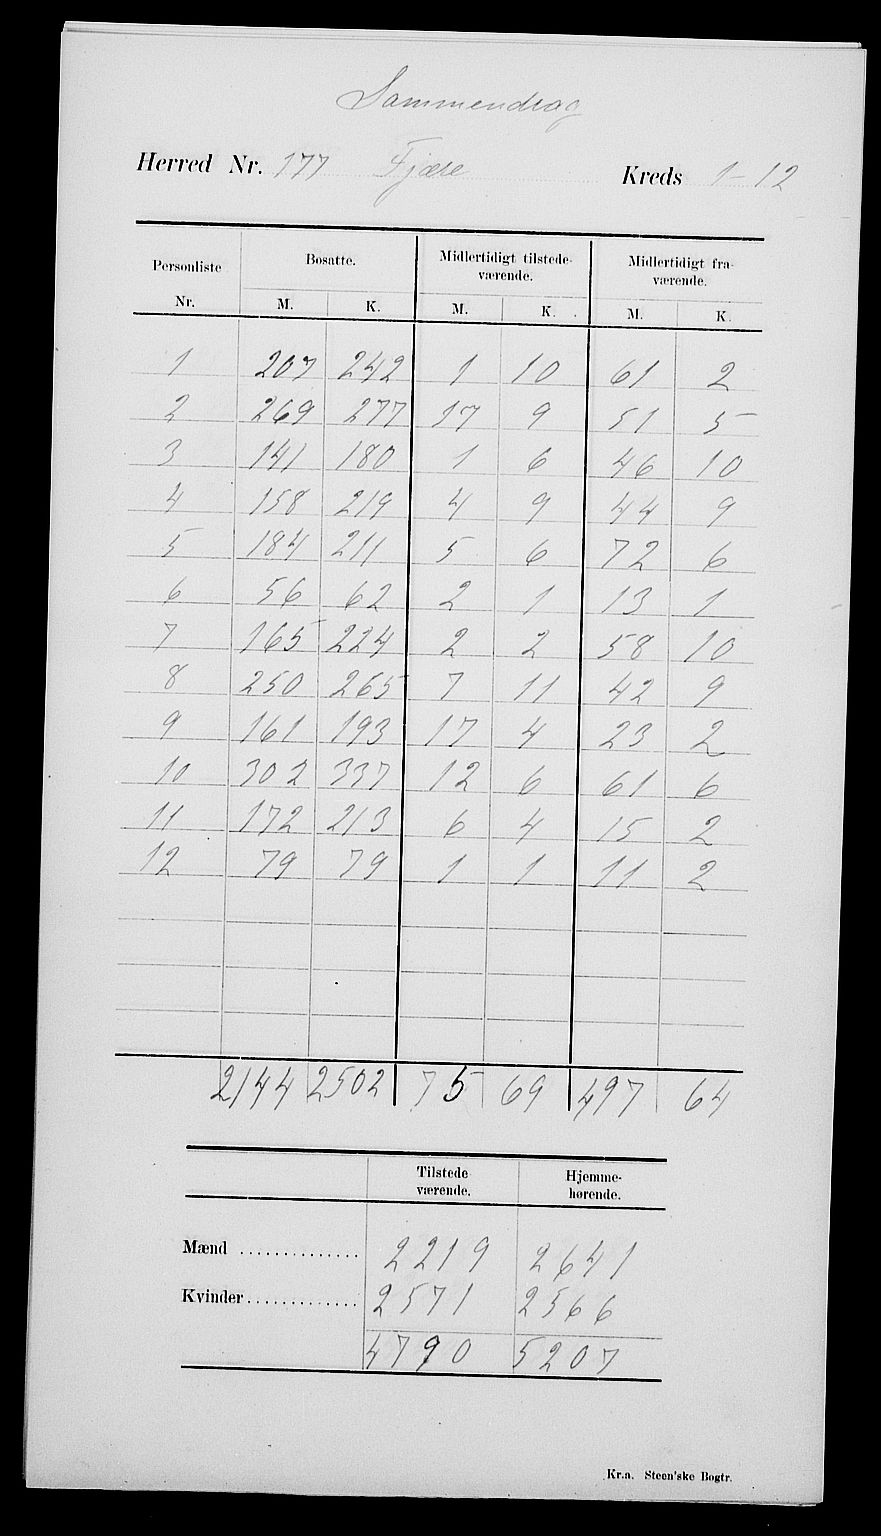 Sammendrag
Herred Nr. 177 Fjære Kreds 1-12
Personliste Nr. Bosatte. Midlertidigt tilstede-værende. Midlertidigt fra-værende.
M. K. M. K. M. K.
1 207 242 1 10 61 2
2 269 277 17 9 51 5
3 141 180 1 6 46 10
4 158 219 4 9 44 9
5 184 211 5 6 72 6
6 56 62 2 1 13 1
7 165 224 2 2 58 10
8 250 265 7 11 42 9
9 161 193 17 4 23 2
10 302 337 12 6 61 6
11 172 213 6 4 15 2
12 79 79 1 1 11 2
2144 2502 75 69 497 64
Tilstede værende. Hjemme-hørende.
Mænd .............. 2219 2641
Kvinder............. 2571 2566
4790 5207
Kr.a. Steen'ske Bogtr.